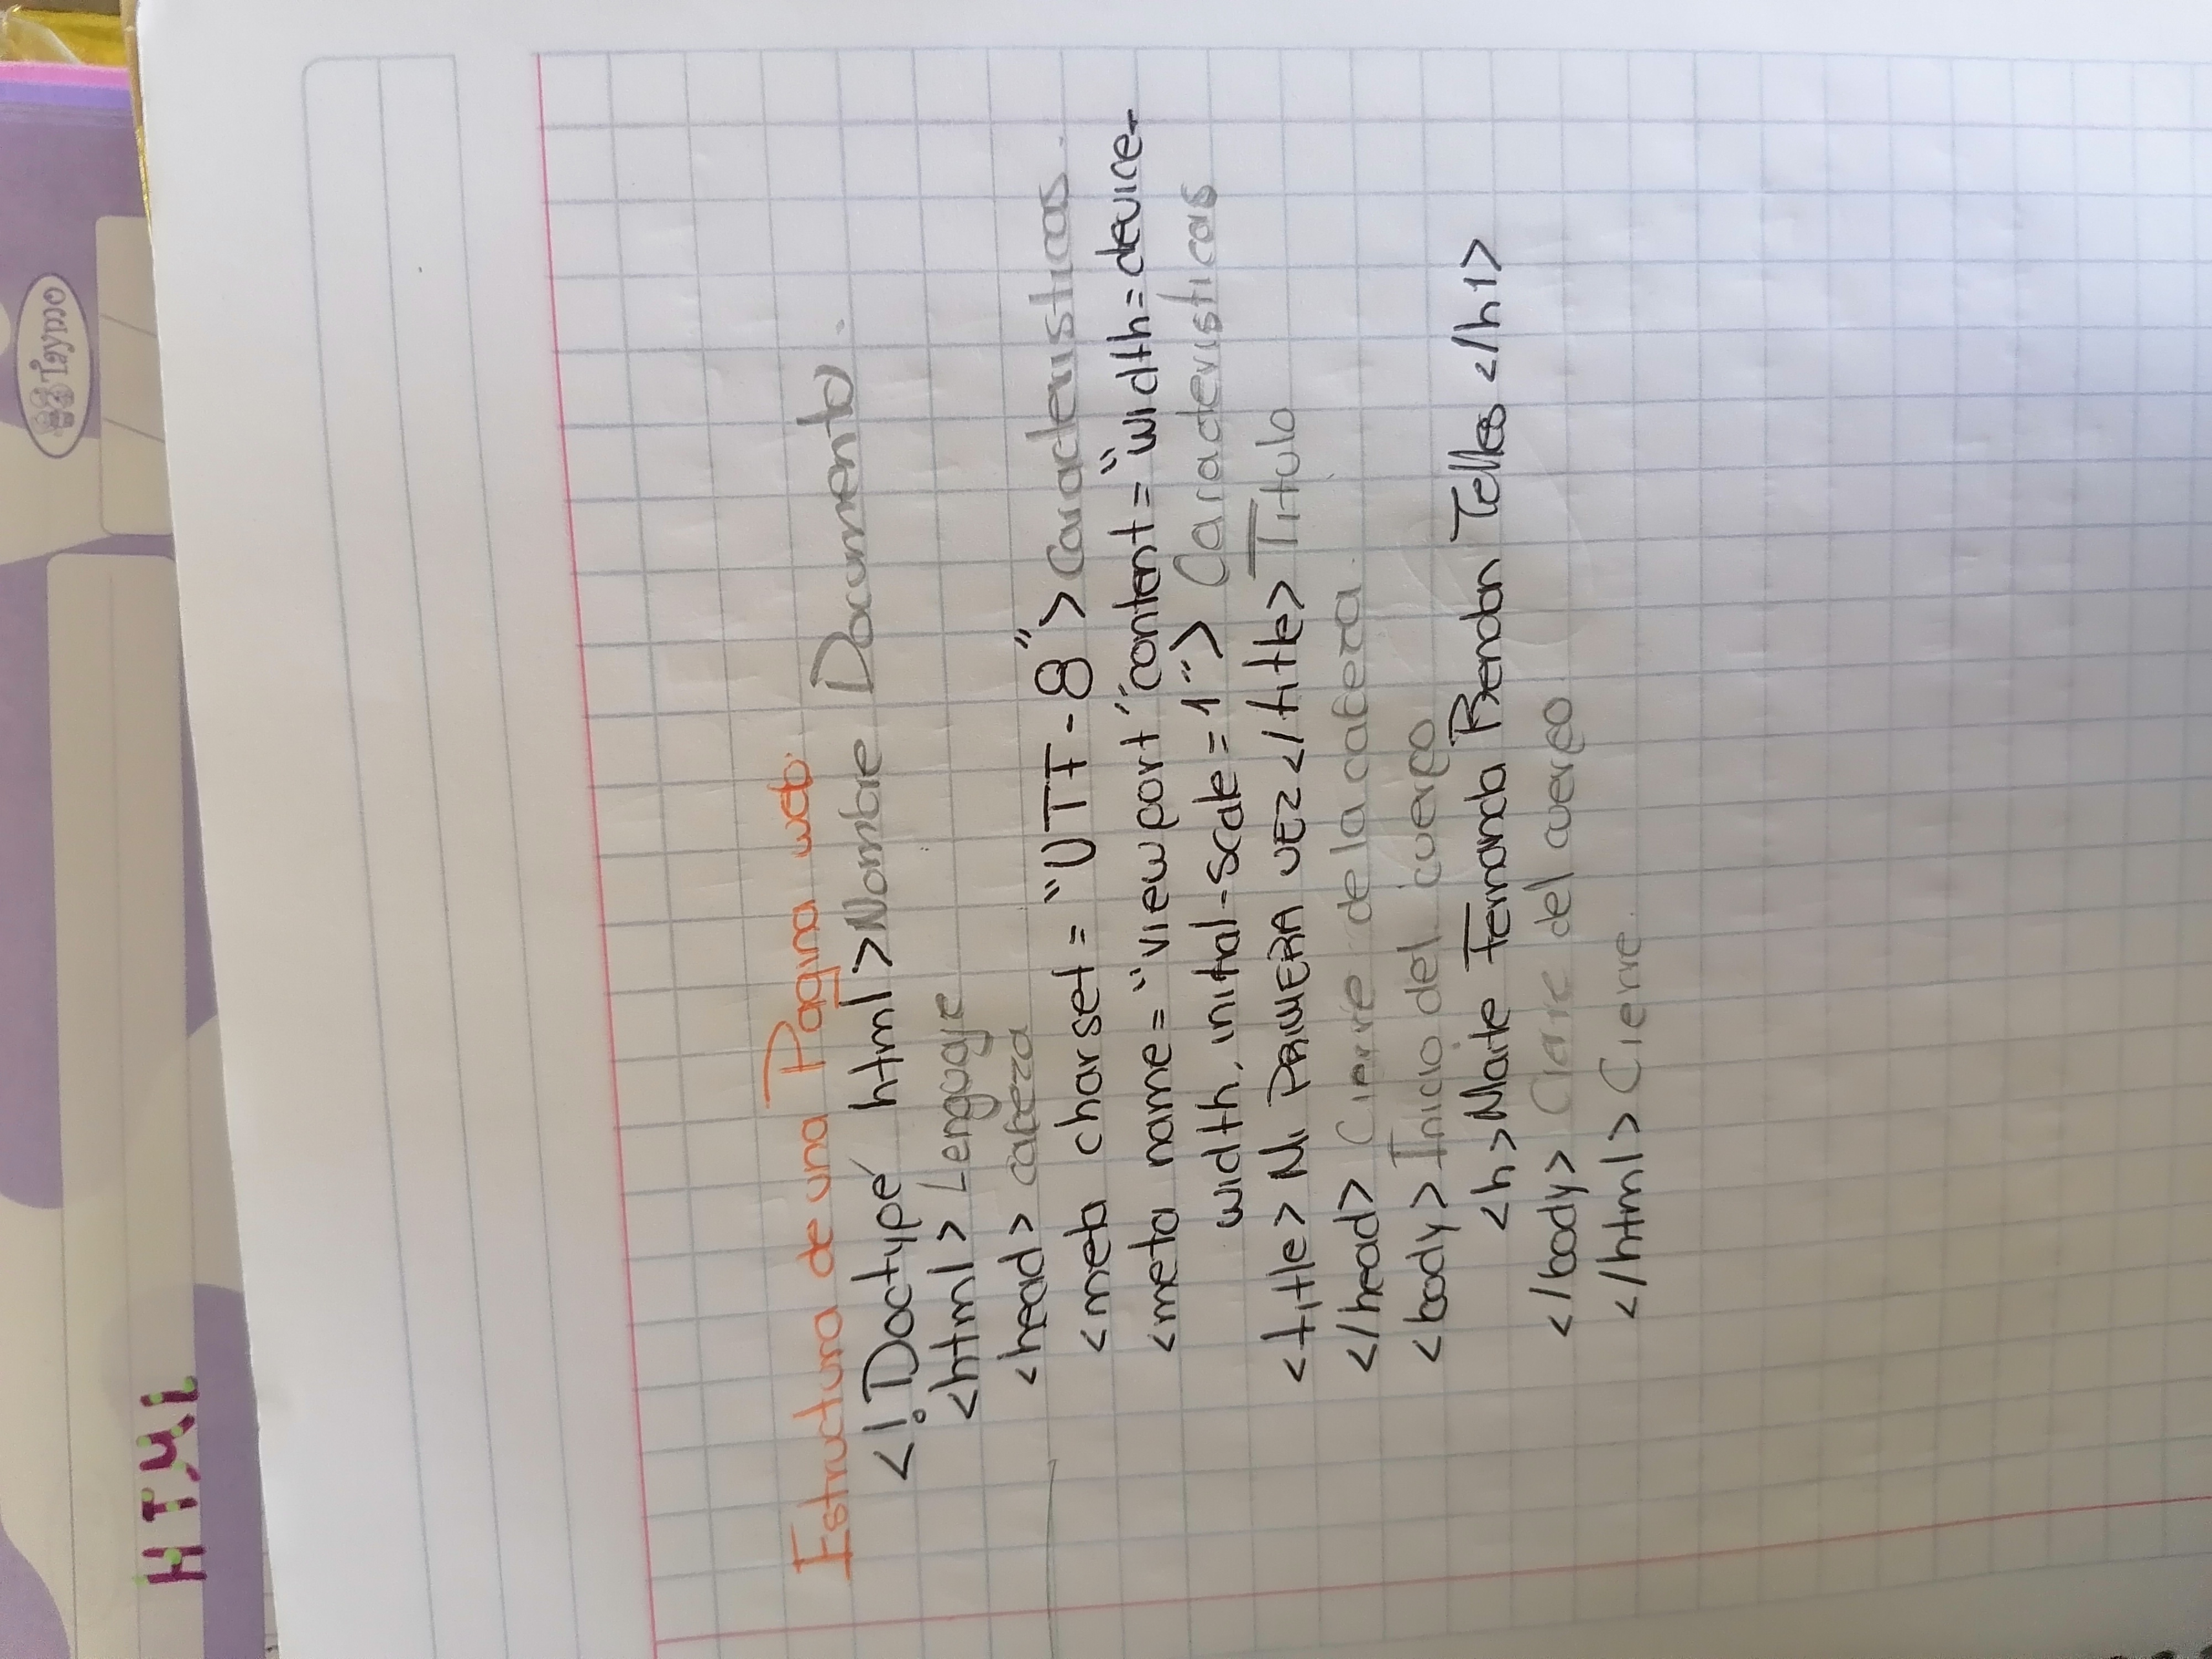 HTML
Taymo
Estructura de una Pagina web.
<!Doctype html> Nombre Documento.
<html> Lenguaje
<head> cabeza
<meta charset = "UTF-8"> Caracteristicas.
<meta name = "viewport" "content = "width = device-
width, initial-scale = 1"> Caracteristicas
<title> Mi PRIMERA VEZ </title> Titulo
</head> Cierre de la cabeza.
<body> Inicio del cuerpo
<h> Maite Fernanda Rendon Telles </h1>
</body> Cierre del cuerpo
</html> Cierre.